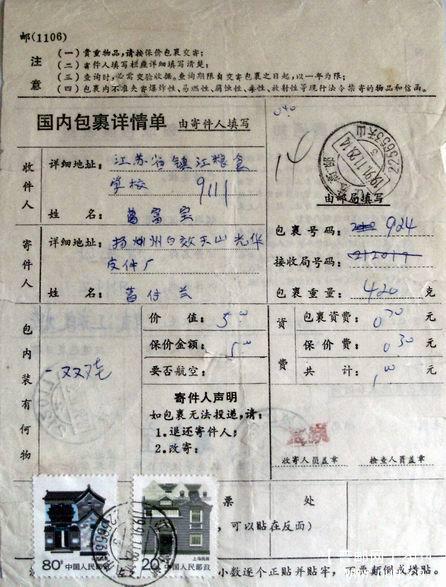 邮(1106)
注意
(一) 贵重物品,请按保价包裹交寄;
(二) 寄件人填写栏应详细填写清楚;
(三) 查询时,必需交验收据。查询期限自交寄包裹之日起,以一年为限;
(四) 包裹内不准夹寄爆炸性、易燃性、腐蚀性、毒性、放射性等现行法令禁寄的物品和信函。
国内包裹详情单 由寄件人填写
收件人
详细地址: 江苏省镇江粮食
学校 9111
姓名: 富宝
14
由邮局填写
包裹号码: 924
接收局号码:
包裹重量: 420 克
寄件人
详细地址: 扬州 天山 光华
皮件厂
姓名:
包内装有何物
一双
价值: 5 00 元
保价金额: 5 00 元
要否航空:
资费
包裹资费: 0 70 元
保价费: 0 30 元
共计: 1 00 元
寄件人声明
如包裹无法投递,请:
1.退还寄件人;
2.改寄:
收寄人员盖章
检查人员盖章
票处
可以贴在反面)
80分 中国人民邮政
20分 中国人民邮政
上海民居
小数逐个正贴并贴牢,不要颠倒或墙贴。